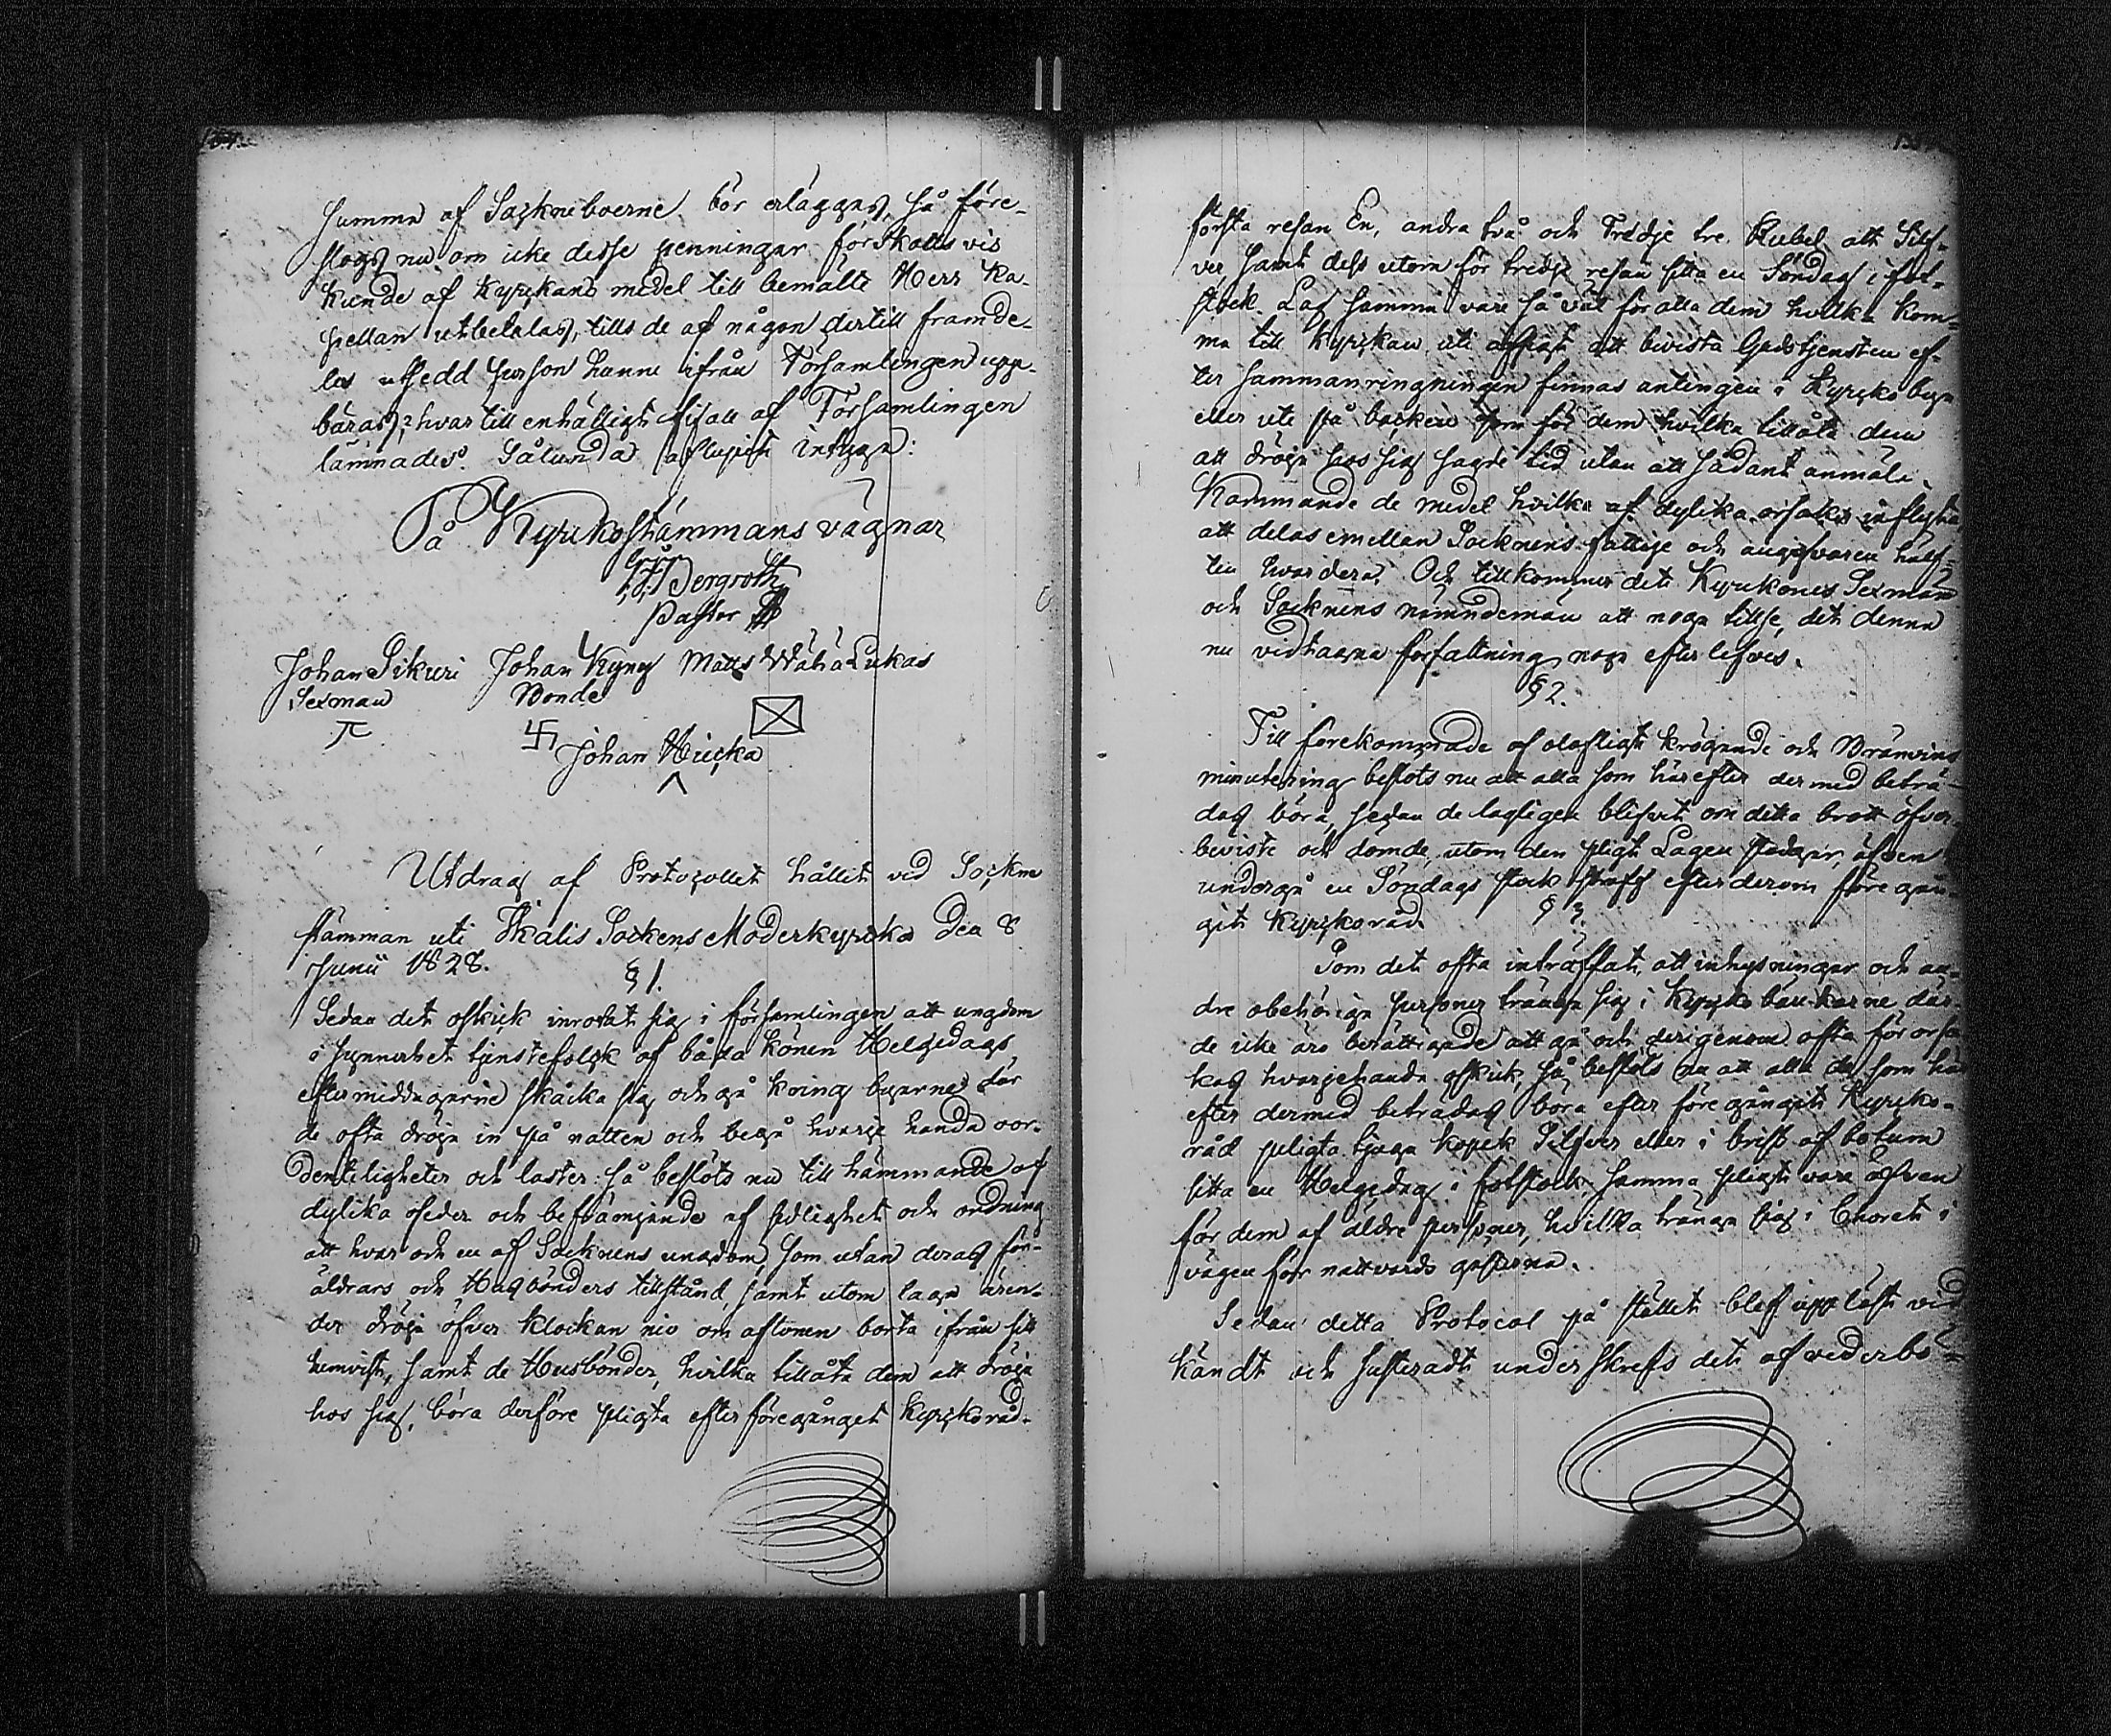 summa af Sockneboerne bör erläggas, så före-
slogs nu om icke desse penningar förskottsvis
kunde af Kyrckans medel till bemälte Herr Ka-
pellan utbetalas, tills de af någon dertill framde-
les utsedd person hunne ifrån Församlingen upp-
bäras? hvartill enhälligt bifall af Församlingen
lämnades. Sålunda aflupit intyga:
På Kyrkostämmans vägnar
Bergroth
Pastor
Johan Sikuri Johan Kyny Matts WähäLukas
Sexman Bonde
Johan Hiucka
Utdrag af Protocollet hållit vid Sockne
stämman uti Ikalis Sockens Moderkyrcka den 8
Junii 1828.
§ 1.
Sedan det oskick inrotat sig i församlingen att ungdom
i synnerhet tjenstefolck af båda könen Helgedags
eftermiddagarne skåcka sig och gå kring byarne där
de ofta dröja in på natten och begå hvarje handa oor-
denteligheter och laster: så beslöts nu till hämmande af
dylika oseder och befrämjande af sedlighet och ordning
att hvar och en af Socknens ungdom, som utan deras för-
äldrars och Husbönders tillstånd, samt utom laga ären-
der dröja öfver klockan nio om aftonen borta ifrån sitt
hemvist, samt de Husbönder, hvilka tillåta dem att dröja
hos sig, böra derföre pligta efter föregånget Kyrckoråd.
första resan En, andra två och Tredje tre Rubel att Silf-
ver samt dess utom för tredje resan sitta en Söndag i fot-
stock. Lag samma vare så väl för alla dem hvilka kom-
ma till Kyrckan uti afsigt att bivista Gudstjensten ef-
ter sammanringningen finnas antingen i Kyrckobyn
eller ute på backen som för dem hvilka tillåta dem
att dröja hos sig sagde tid utan att sådant anmäla.
Kommande de medel hvilka af dylika orsaker inflyta
att delas emellan Socknens fattige och angifvaren hälf-
ten hvardera. Och tillkommer det Kyrkones Sexmän
och Socknens nämndemän att noga tillse, det denna
nu vidtagna författning noga efterlefves.
§ 2.
Till förekommande af olofligt krögande och Bränvins
minutering beslöts nu att alla som härefter dermed beträ-
das böra, sedan de lagligen blifvit om detta brott öfver-
beviste och dömde, utom den pligt Lagen stadgar, äfven
undergå en Söndags stock straff efter derom föregån-
git Kyrckoråd.
§ 3.
Som det ofta inträffat, att inhysningar och an-
dre obehöriga personer tränga sig i Kyrcko bänkarne där
de icke äro berättigade att gå och derigenom ofta förorsa
kas hvarjehanda oskick, så beslöts nu att alla de som här
efter dermed beträdas böra efter föregångit Kyrcko-
råd pligta tjugu kopek Silfver eller i brist af botum
sitta en Helgedag i fotstock. Samma pligt vare äfven
för dem af äldre personer, hvilka tränga sig i Choret i
vägen för nattvards gästerna.
Sedan detta Protocol på stället blef uppläst vid
kändt och justeradt underskrefs det af vederbö-